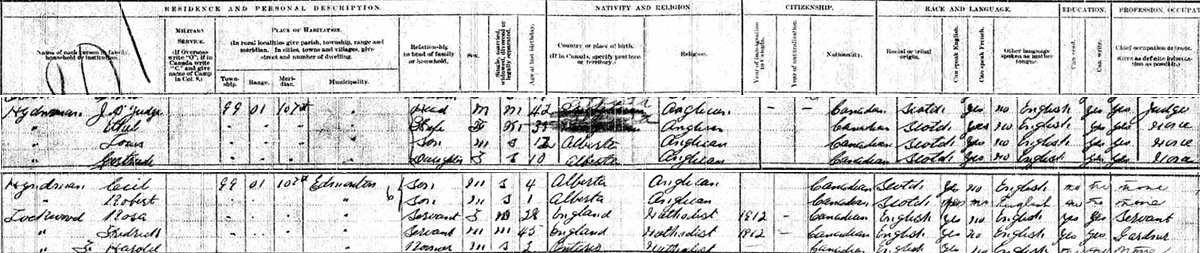 RESIDENCE AND PERSONAL DESCRIPTION. NATIVITY AND RELIGION CITIZENSHIP. RACE AND LANGUAGE. EDUCATION. PROFESSION, OCCUPAT
Name of each person in family, household or institution.
MILITARY SERVICE. (If Overseas write "O"; if in Canada write "C" and give name of Camp in Col. 8.)
PLACE OF HABITATION.
(In rural localities give parish, township, range and meridian. In cities, towns and villages, give street and number of dwelling.)
Town-ship. Range. Meri-dian. Municipality.
Relationship to head of family or household.
Sex.
Single, married, widowed, divorced or legally separated.
Age at last birthday.
Country or place of birth. (If in Canada, specify province or territory.)
Religion.
Year of immigration to Canada.
Year of naturalization.
Nationality.
Racial or tribal origin.
Can speak English.
Can speak French.
Other language spoken as mother tongue.
Can read.
Can write.
Chief occupation or trade.
Hyndman J.D. Judge 99 01 107th Head M M 42 Anglican - - Canadian Scotch yes no English yes yes Judge
" Ethel F M Anglican Canadian Scotch yes no English yes yes None
" Louis Son M S 12 Alberta Anglican Canadian Scotch yes no English yes yes None
" Gertrude Daughter F S 10 Alberta Anglican Canadian Scotch yes no English yes yes None
Hyndman Cecil 99 01 107th Edmonton Son M S 4 Alberta Anglican Canadian Scotch yes no English no none
" Robert Son M S 1 Alberta Anglican Canadian Scotch English none
Lockwood Rosa Servant F M 28 England Methodist 1912 - Canadian English yes no English yes yes Servant
" Servant M M 45 England Methodist 1912 - Canadian English yes no English yes yes Gardner
" F Harold Roomer M S Methodist Canadian English yes no English none